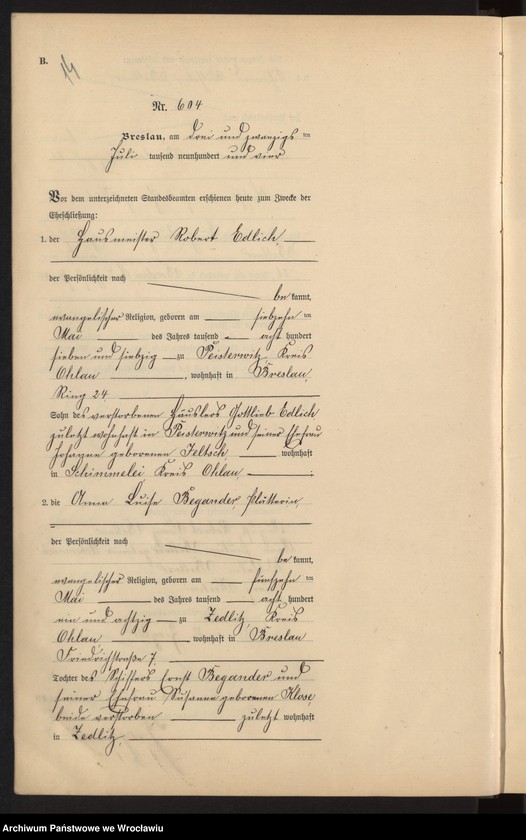 B.
Nr. 604
Breslau, am drei und zwanzigsten
Juli tausend neunhundert und vier
Vor dem unterzeichneten Standesbeamten erschienen heute zum Zwecke der
Eheschließung:
1. der Hausmeister Robert Edlich,
der Persönlichkeit nach
bekannt,
evangelischer Religion, geboren am siebzehnten
Mai des Jahres tausend acht hundert
sieben und siebzig zu Peisterwitz, Kreis
Ohlau, wohnhaft in Breslau,
Ring 24
Sohn des verstorbenen Häuslers Gottlieb Edlich
zuletzt wohnhaft in Peisterwitz und seiner Ehefrau
Johanne geborenen Jeltsch, wohnhaft
in Schimmelei Kreis Ohlau
2. die Anna Luise Begander, Plätterin,
der Persönlichkeit nach
bekannt,
evangelischer Religion, geboren am fünfzehnten
Mai des Jahres tausend acht hundert
ein und achtzig zu Zedlitz, Kreis
Ohlau, wohnhaft in Breslau
Friedrichstraße 7,
Tochter des Schiffers Ernst Begander und
seiner Ehefrau Susanne geborenen Klose,
beide verstorben zuletzt wohnhaft
in Zedlitz,
Archiwum Państwowe we Wrocławiu